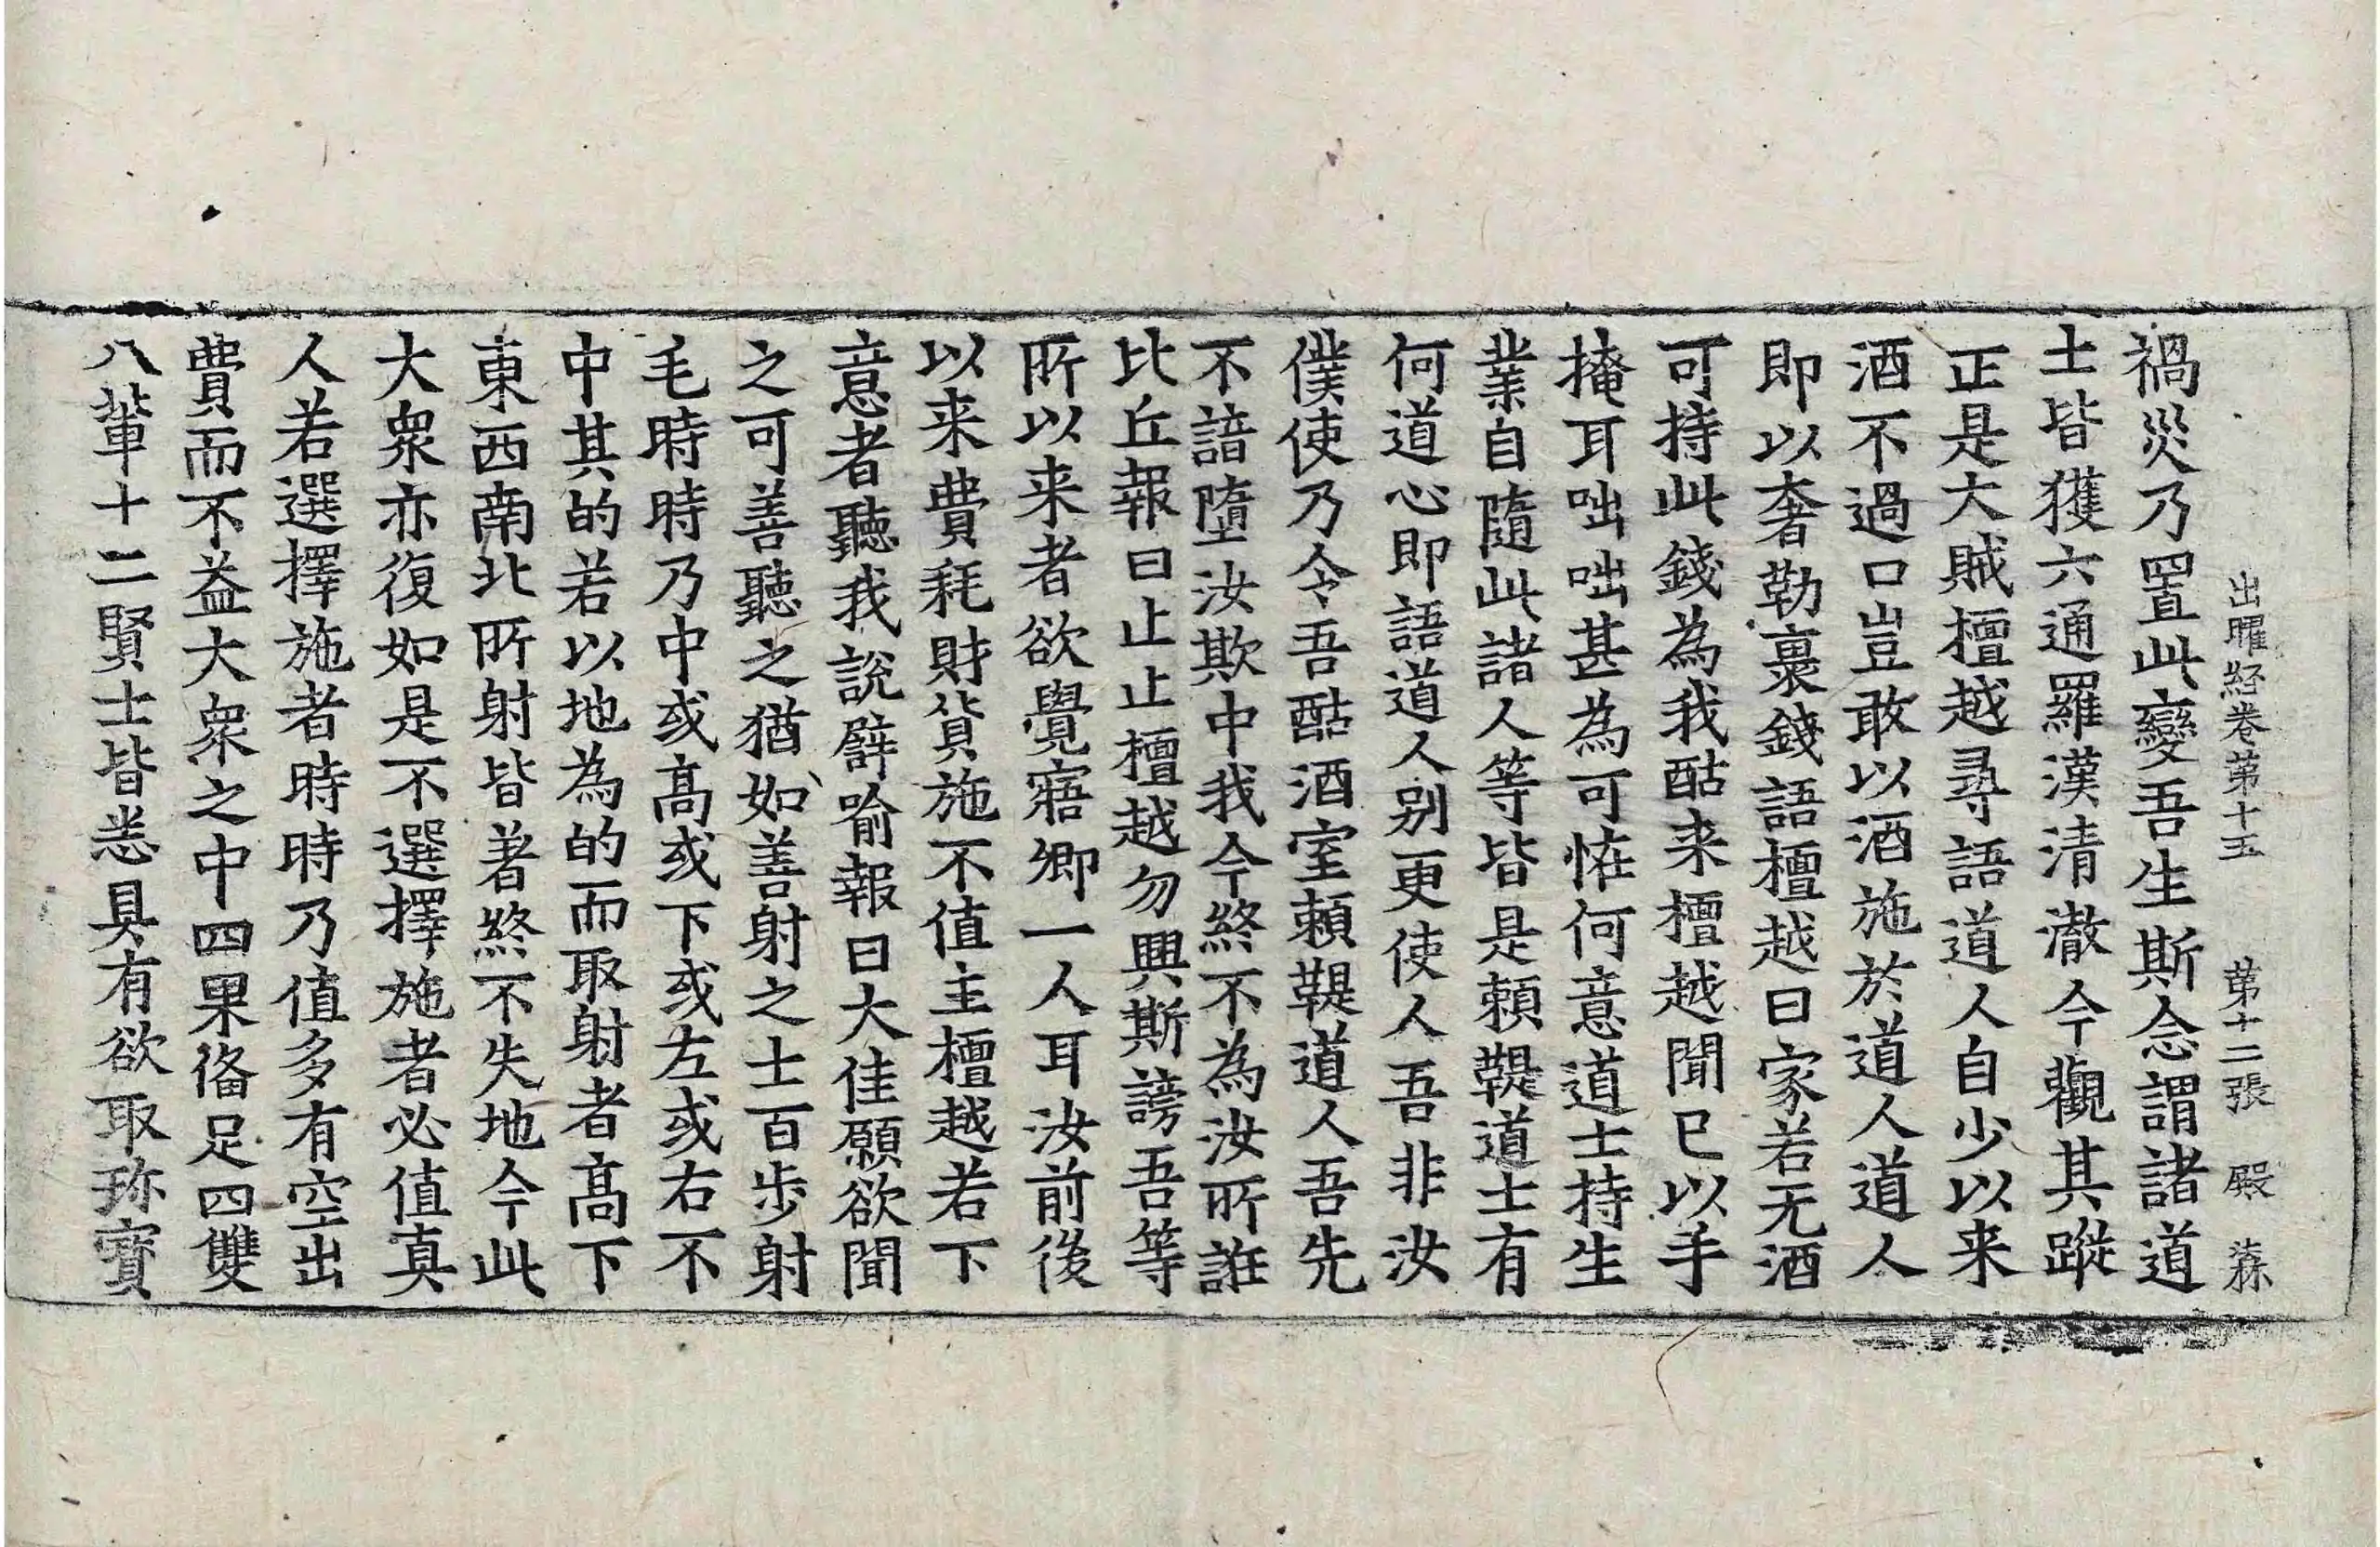 出曜経卷第十五　第十二張　殿
禍災乃置此變吾生斯念謂諸道
士皆獲六通羅漢清澈今觀其蹤
正是大賊檀越尋語道人自少以来
酒不過口豈敢以酒施於道人道人
即以奢勒裹錢語檀越曰家若无酒
可持此錢為我酤来檀越聞已以手
掩耳咄咄甚為可恠何意道士持生
業自隨此諸人等皆是賴鞮道士有
何道心即語道人別更使人吾非汝
僕使乃令吾酤酒室賴鞮道人吾先
不諳墮汝欺中我今終不為汝所誑
比丘報曰止止檀越勿興斯謗吾等
所以来者欲覺寤卿一人耳汝前後
以来費耗財貨施不值主檀越若下
意者聽我說譬喻報曰大佳願欲聞
之可善聽之猶如善射之士百步射
毛時時乃中或高或下或左或右不
中其的若以地為的而取射者高下
東西南北所射皆著終不失地今此
大衆亦復如是不選擇施者必值真
人若選擇施者時時乃值多有空出
費而不益大衆之中四果俻足四雙
八輩十二賢士皆悉具有欲取珎寶